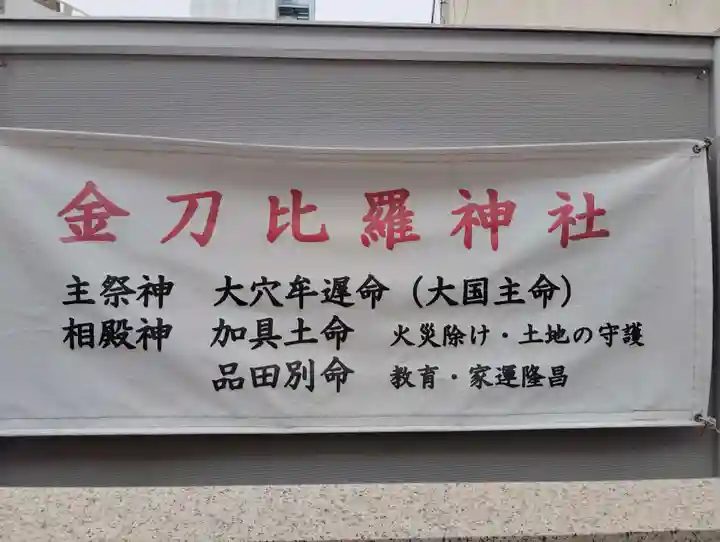 金刀比羅神社
主祭神 大穴牟遅命（大国主命）
相殿神 加具土命 火災除け・土地の守護
品田別命 教育・家運隆昌